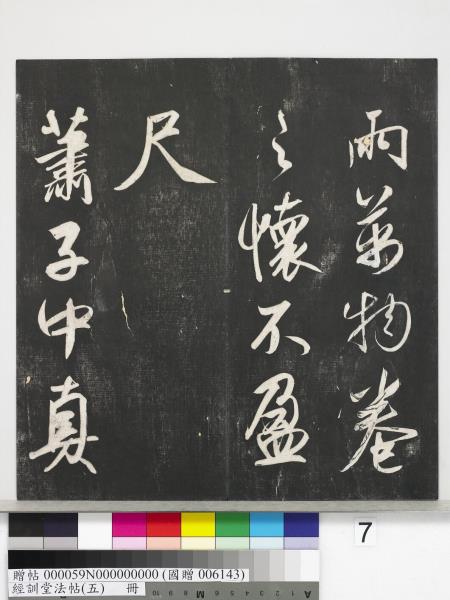 雨萬物卷
之懷不盈
尺
蕭子中真
7
贈帖 000059N000000000 (國贈 006143)
經訓堂法帖(五) 冊